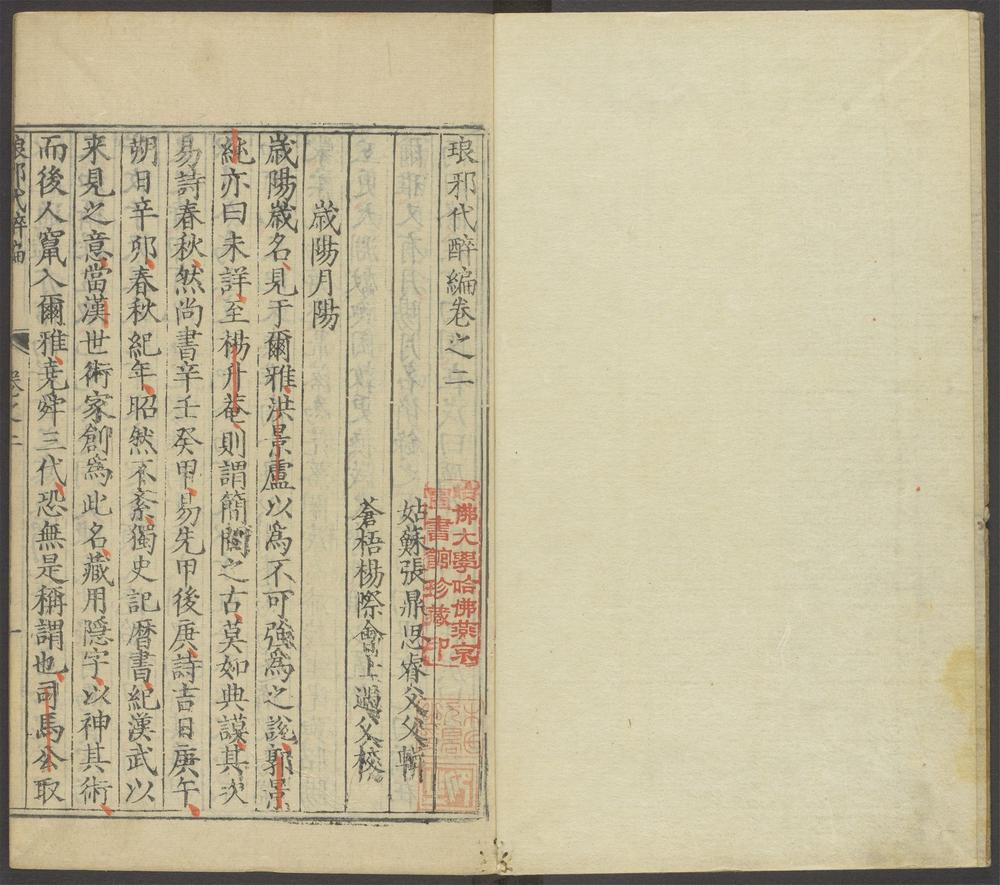 琅邪代醉編卷之二
姑蘇張鼎思睿父父輯
蒼梧楊際會士遇父校
歲陽月陽
歲陽歲名見于爾雅洪景盧以為不可強為之說郭景
純亦曰未詳至楊升菴則謂簡閱之古莫如典謨其次
易詩春秋然尚書辛壬癸甲易先甲後庚詩吉日庚午
朔日辛卯春秋紀年昭然不紊獨史記曆書紀漢武以
来見之意當漢世術家創為此名藏用隠字以神其術
而後人竄入爾雅堯舜三代恐無是稱謂也司馬公取
琅邪代醉編
卷之二
一
哈佛大學哈佛燕京
圖書館珍藏印